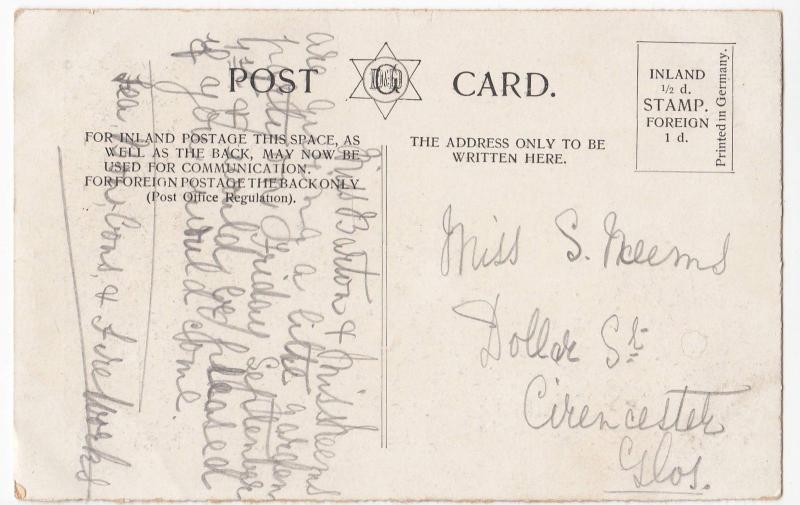 POST CARD.
FOR INLAND POSTAGE THIS SPACE, AS
WELL AS THE BACK, MAY NOW BE
USED FOR COMMUNICATION.
FOR FOREIGN POSTAGE THE BACK ONLY
(Post Office Regulation).
THE ADDRESS ONLY TO BE
WRITTEN HERE.
INLAND
1/2 d.
STAMP.
FOREIGN
1 d.
Printed in Germany.
Miss Barton & Miss Meems
are giving a little garden
party on Friday September
& would be pleased
if you would come.
Tea, & Fire Works
Miss S. Meems
Dollar St.
Cirencester
Glos.